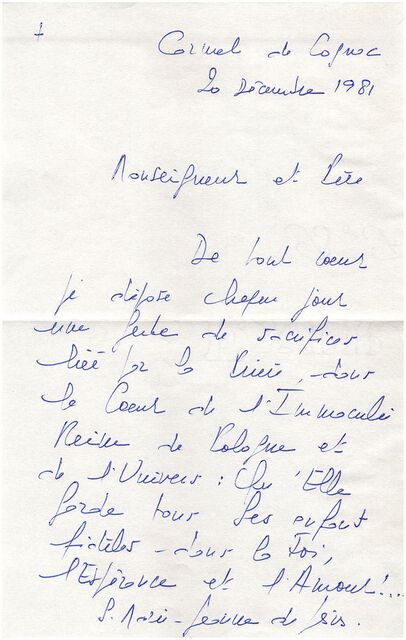 +
Carmel de Cognac
20 Décembre 1981
Monseigneur et Père
De tout cœur
je dépose chaque jour
une gerbe de sacrifices
liée par la Prière, - dans
le Cœur de l'Immaculée
Reine de Pologne et
de l'Univers : Qu'Elle
garde tous Ses enfants
fidèles - dans la Foi,
l'Espérance et l'Amour !...
S. Marie-Jeanne de Jésus.